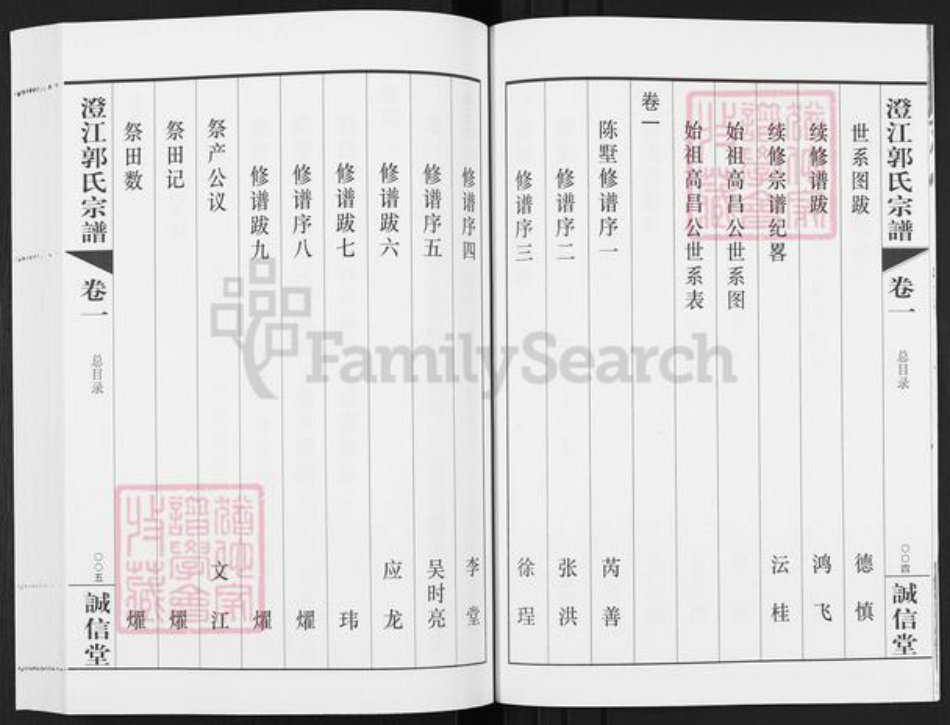 澄江郭氏宗譜
卷一
总目录
〇〇四
誠信堂
世系图跋 德慎
续修谱跋 鸿飞
续修宗谱纪畧 沄桂
始祖高昌公世系图
始祖高昌公世系表
卷一
陈墅修谱序一 芮善
修谱序二 张洪
修谱序三 徐珵
修谱序四 李堂
修谱序五 吴时亮
修谱跋六 应龙
修谱跋七 玮
修谱序八 燿
修谱跋九 燿
祭产公议 文江
祭田记 燿
祭田数 燿
澄江郭氏宗譜
卷一
总目录
〇〇五
誠信堂
FamilySearch